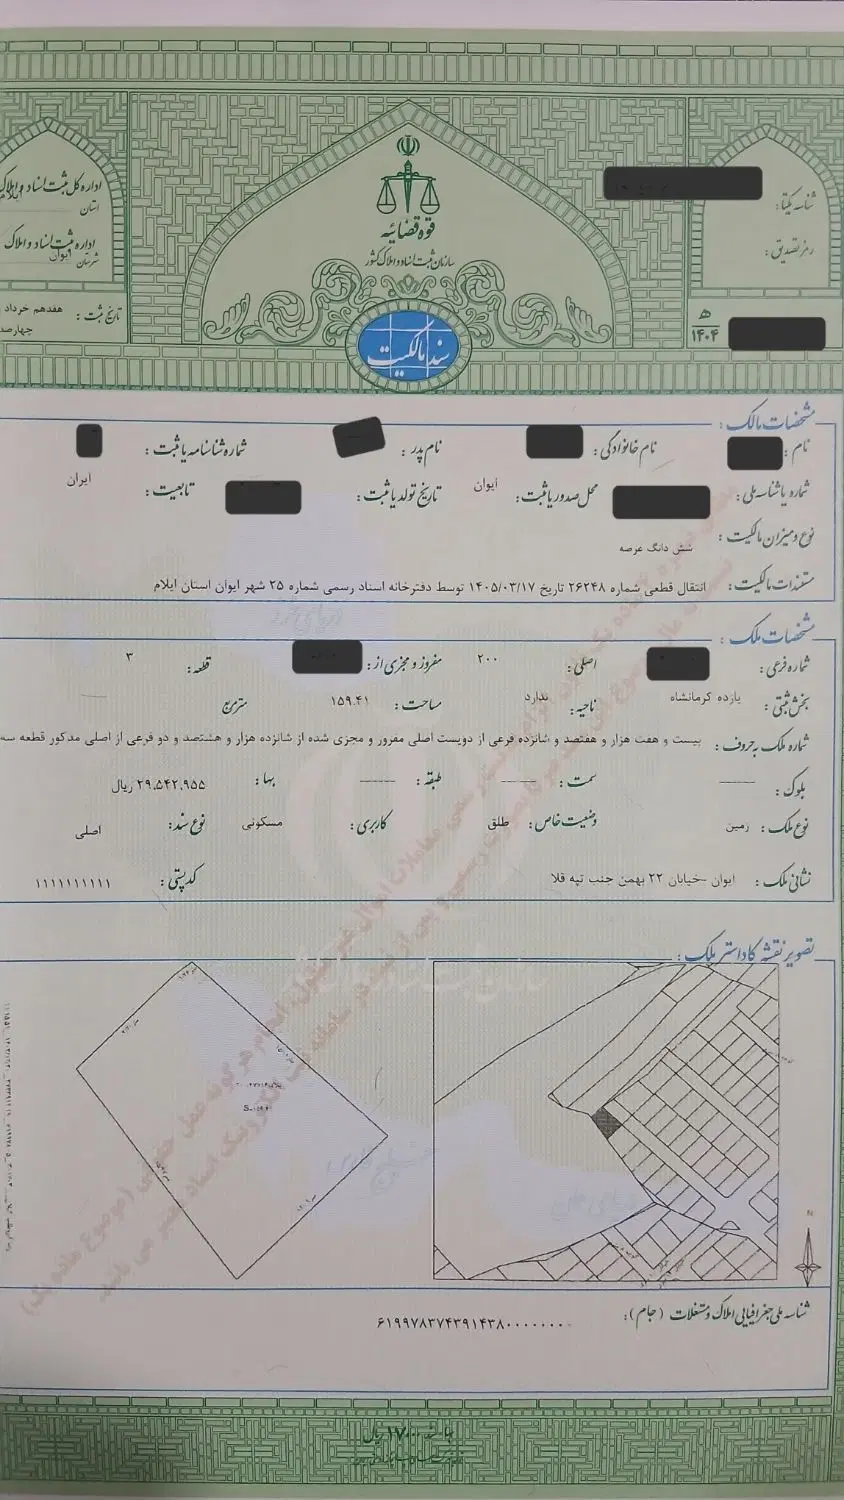 قوه قضائیه
سازمان ثبت اسناد و املاک کشور
سند مالکیت
شناسه یکتا:
رمز تصدیق:
ه
۱۴۰۴
اداره کل ثبت اسناد و املاک
استان ایلام
اداره ثبت اسناد و املاک
شهرستان ایوان
تاریخ ثبت: هفدهم خرداد
چهارصد
مشخصات مالک:
نام: نام خانوادگی: نام پدر: شماره شناسنامه یا ثبت:
شماره یا شناسه ملی: محل صدور یا ثبت: ایوان تاریخ تولد یا ثبت: تابعیت: ایران
نوع و میزان مالکیت: شش دانگ عرصه
مستندات مالکیت: انتقال قطعی شماره ۲۶۲۴۸ تاریخ ۱۴۰۵/۰۳/۱۷ توسط دفترخانه اسناد رسمی شماره ۲۵ شهر ایوان استان ایلام
مشخصات ملک:
شماره فرعی: اصلی: ۲۰۰ مفروز و مجزی از: قطعه: ۳
بخش ثبتی: یازده کرمانشاه ناحیه: ندارد مساحت: ۱۵۹.۴۱ متر مربع
شماره ملک به حروف: بیست و هفت هزار و هفتصد و شانزده فرعی از دویست اصلی مفروز و مجزی شده از شانزده هزار و هشتصد و دو فرعی از اصلی مذکور قطعه سه
بلوک: —— سمت: —— طبقه: —— بها: ۲۹,۵۴۲,۹۵۵ ریال
نوع ملک: زمین وضعیت خاص: طلق کاربری: مسکونی نوع سند: اصلی
نشانی ملک: ایوان -خیابان ۲۲ بهمن جنب تپه قلا کدپستی: ۱۱۱۱۱۱۱۱۱۱
تصویر نقشه کاداستر ملک:
N
شناسه ملی جغرافیایی املاک و مستغلات (جام): ۶۱۹۹۷۸۳۷۴۳۹۱۴۳۸۰۰۰۰۰۰۰۰